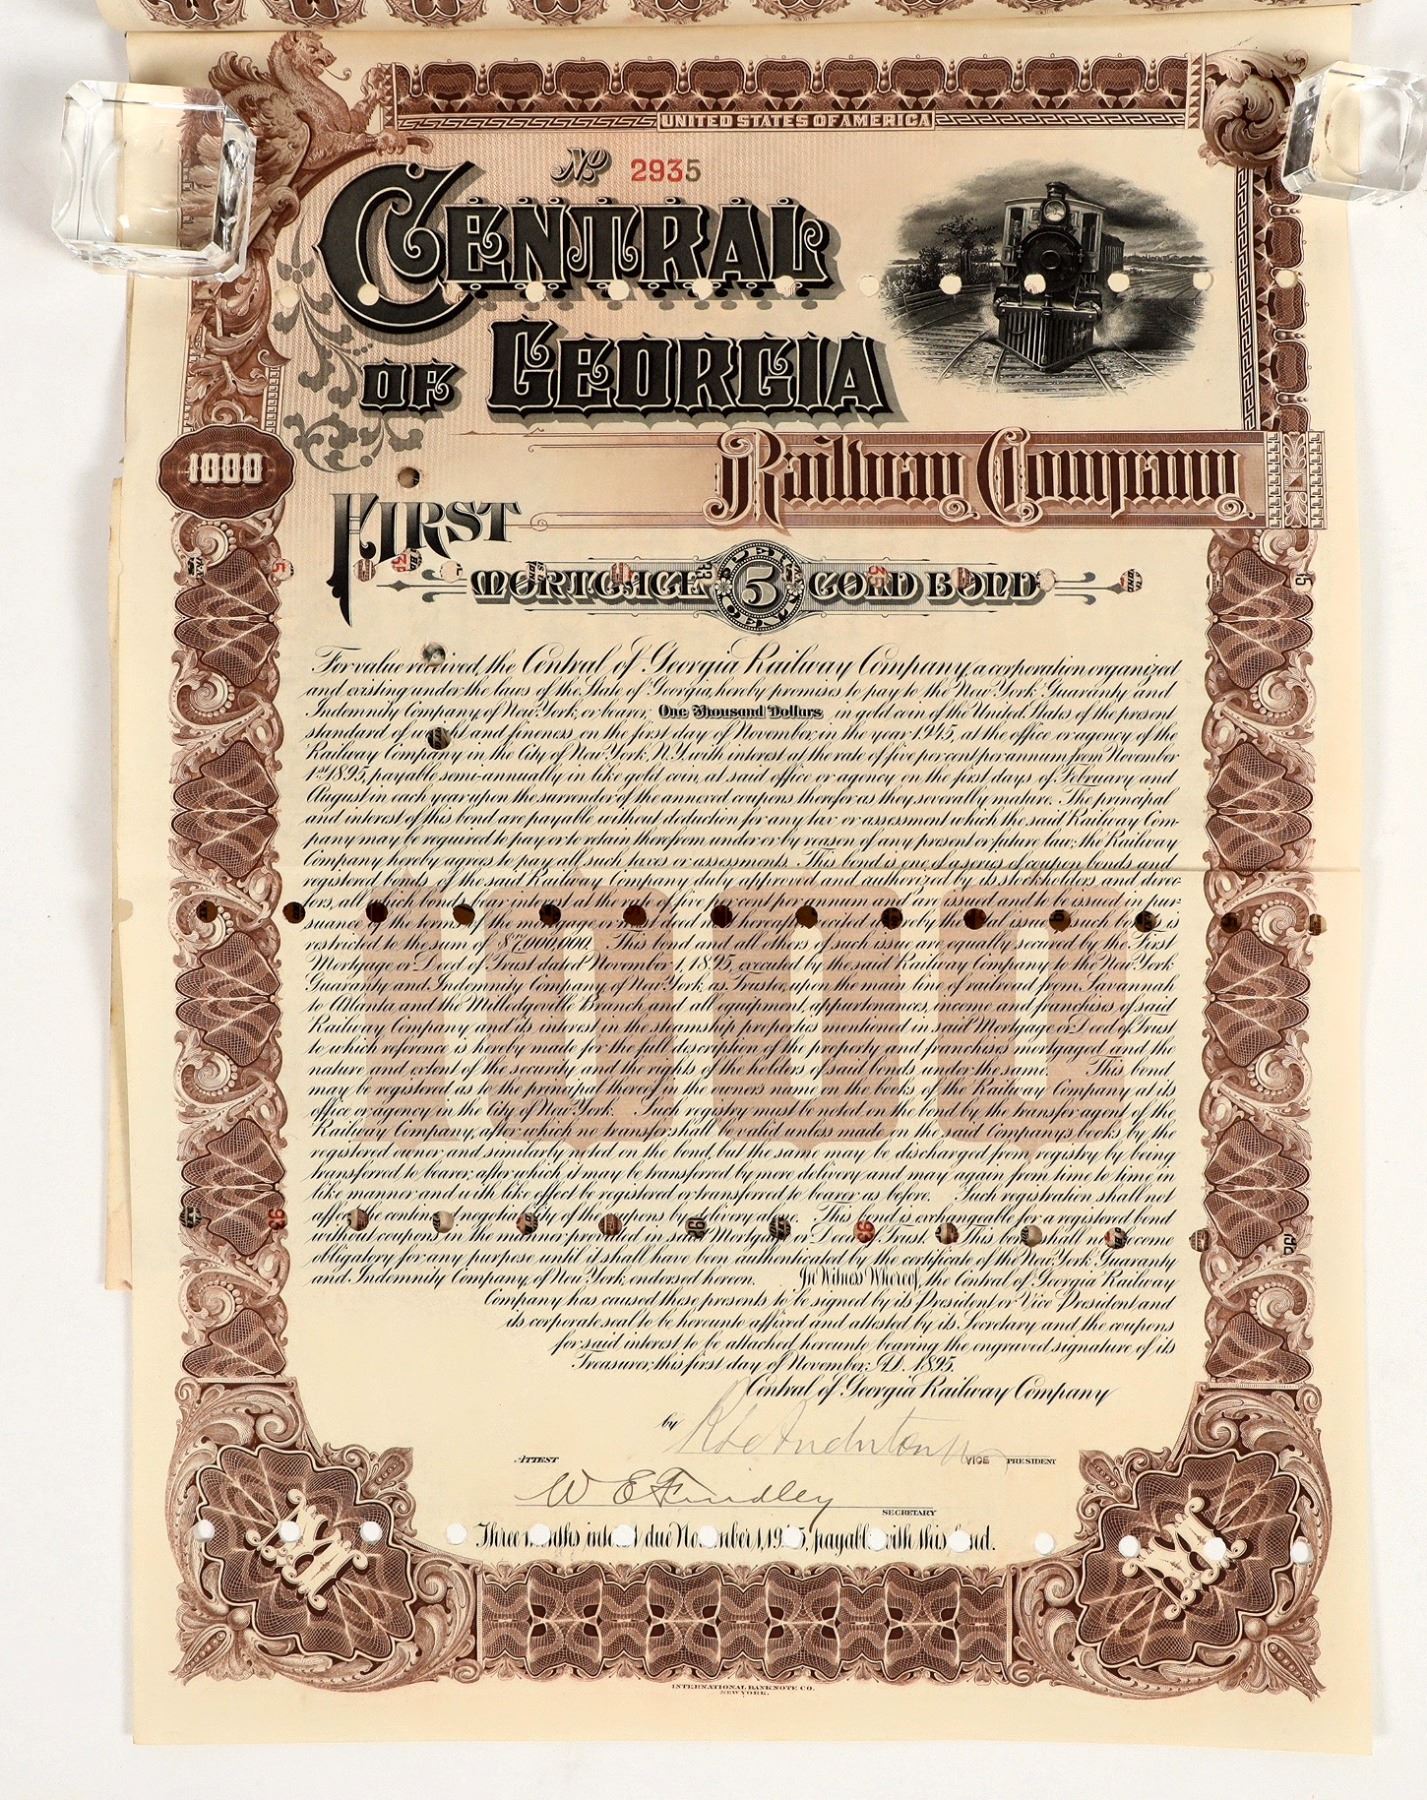 UNITED STATES OF AMERICA
No 2935
CENTRAL
OF GEORGIA
Railway Company
1000
FIRST
MORTGAGE 5 GOLD BOND
For value received, the Central of Georgia Railway Company, a corporation organized
and existing under the laws of the State of Georgia, hereby promises to pay to the New York Guaranty and
Indemnity Company, of New York, or bearer, One Thousand Dollars in gold coin of the United States of the present
standard of weight and fineness, on the first day of November, in the year 1945, at the office or agency of the
Railway Company in the City of New York, N.Y. with interest at the rate of five per cent per annum from November
1st 1895, payable semi-annually in like gold coin, at said office or agency on the first days of February and
August in each year upon the surrender of the annexed coupons therefor as they severally mature. The principal
and interest of this bond are payable without deduction for any tax or assessment which the said Railway Com-
pany may be required to pay or to retain therefrom under or by reason of any present or future law; the Railway
Company hereby agrees to pay all such taxes or assessments. This bond is one of a series of coupon bonds and
registered bonds of the said Railway Company duly approved and authorized by its stockholders and direc-
tors, all which bonds bear interest at the rate of five per cent per annum and are issued and to be issued in pur-
suance of the terms of the mortgage or trust deed next hereafter recited whereby the total issue of such bonds is
restricted to the sum of $7,000,000. This bond and all others of such issue are equally secured by the First
Mortgage or Deed of Trust dated November 1, 1895, executed by the said Railway Company to the New York
Guaranty and Indemnity Company of New York, as Trustee, upon the main line of railroad from Savannah
to Atlanta and the Milledgeville Branch and all equipment, appurtenances, income and franchises of said
Railway Company and its interest in the steamship properties mentioned in said Mortgage or Deed of Trust
to which reference is hereby made for the full description of the property and franchises mortgaged and the
nature and extent of the security and the rights of the holders of said bonds under the same. This bond
may be registered as to the principal thereof in the owners name on the books of the Railway Company at its
office or agency in the City of New York. Such registry must be noted on the bond by the transfer agent of the
Railway Company, after which no transfer shall be valid unless made on the said Company's books by the
registered owner, and similarly noted on the bond, but the same may be discharged from registry by being
transferred to bearer, after which it may be transferred by mere delivery and may again from time to time in
like manner and with like effect be registered or transferred to bearer as before. Such registration shall not
affect the continued negotiability of the coupons by delivery alone. This bond is exchangeable for a registered bond
without coupons in the manner provided in said Mortgage or Deed of Trust. This bond shall not become
obligatory for any purpose until it shall have been authenticated by the certificate of the New York Guaranty
and Indemnity Company, of New York, endorsed hereon. In Witness Whereof, the Central of Georgia Railway
Company has caused these presents to be signed by its President or Vice President and
its corporate seal to be hereunto affixed and attested by its Secretary and the coupons
for said interest to be attached hereunto bearing the engraved signature of its
Treasurer, this first day of November, A.D. 1895.
Central of Georgia Railway Company
by
VICE PRESIDENT
ATTEST
W E Findley
SECRETARY
Three months interest due November 1, 1945, payable with this bond.
M M
INTERNATIONAL BANK NOTE CO.
NEW YORK.